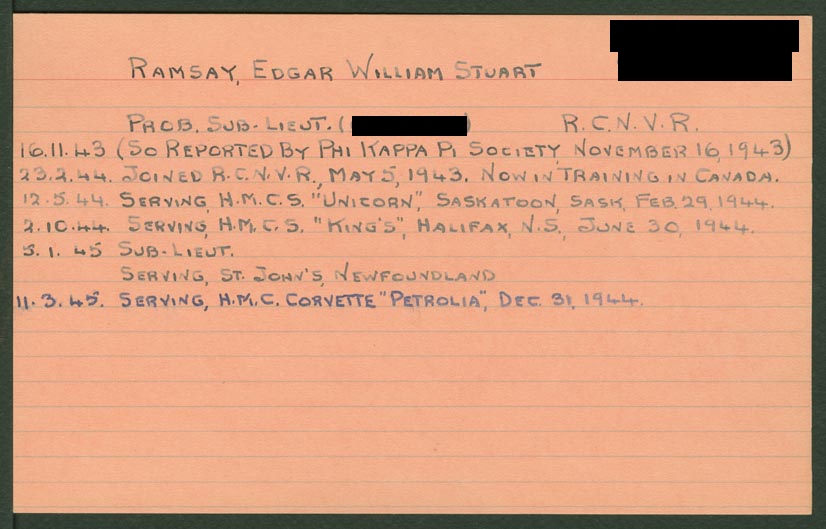 RAMSAY, EDGAR WILLIAM STUART
PROB. SUB-LIEUT. ( ) R.C.N.V.R.
16.11.43 (SO REPORTED BY PHI KAPPA PI SOCIETY, NOVEMBER 16, 1943)
23.2.44. JOINED R.C.N.V.R., MAY 5, 1943. NOW IN TRAINING IN CANADA.
12.5.44. SERVING, H.M.C.S. "UNICORN", SASKATOON, SASK, FEB. 29, 1944.
2.10.44. SERVING, H.M.C.S. "KING'S", HALIFAX, N.S., JUNE 30, 1944.
5.1.45 SUB-LIEUT.
SERVING, ST. JOHN'S, NEWFOUNDLAND
11.3.45. SERVING, H.M.C. CORVETTE "PETROLIA", DEC. 31, 1944.